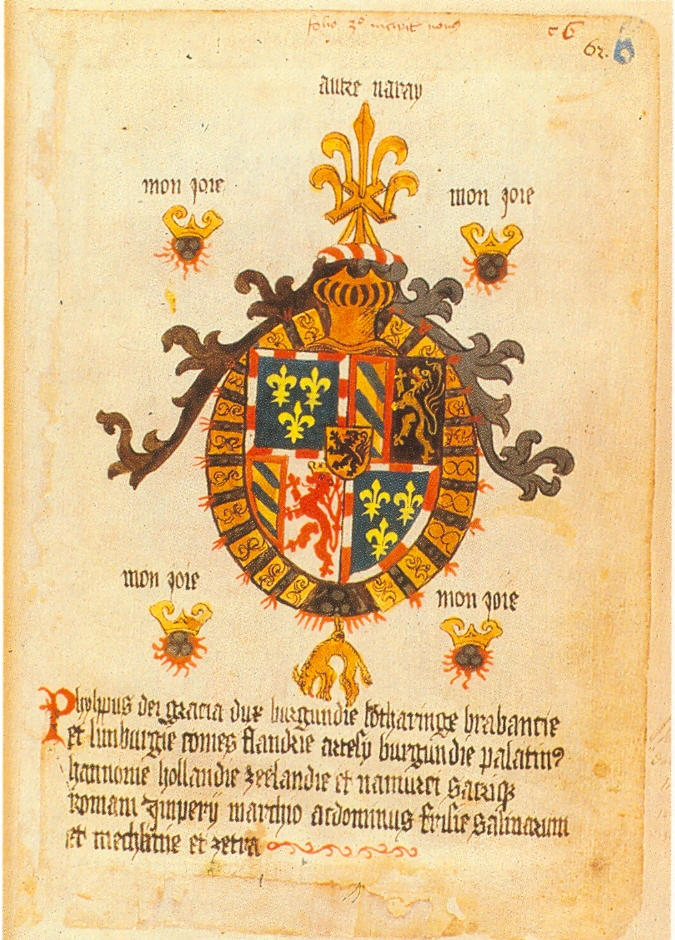 folio 3º incipit nous
c 6
62. 6
autre naray
mon joie
mon joie
mon joie
mon joie
Phylippus dei gracia dux burgundie lotharingie brabancie
et limburgie comes flandrie artesy burgundie palatinꝰ
hannonie hollandie zeelandie et namurci sacriqꝫ
Romani Imperij marchio ac dominus frisie salinarum
et mechlinie et zetra